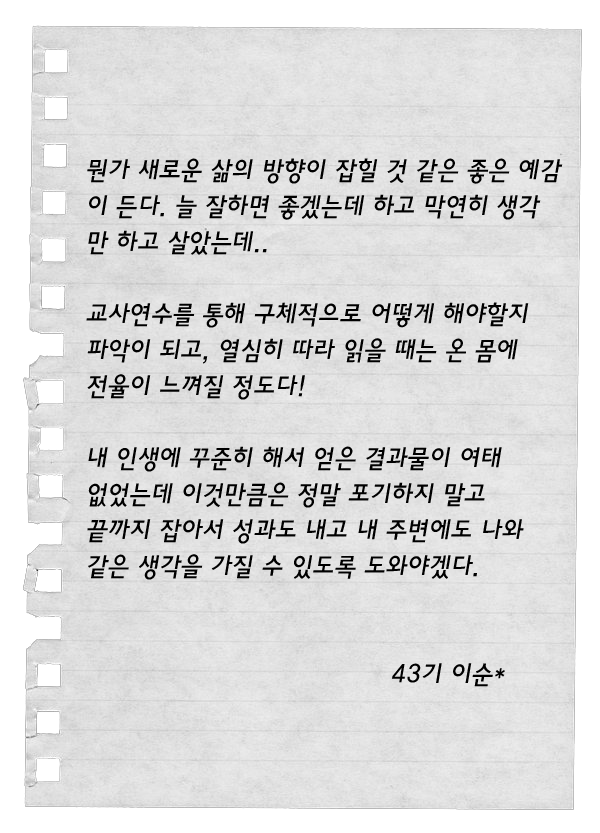 뭔가 새로운 삶의 방향이 잡힐 것 같은 좋은 예감
이 든다. 늘 잘하면 좋겠는데 하고 막연히 생각
만 하고 살았는데..
교사연수를 통해 구체적으로 어떻게 해야할지
파악이 되고, 열심히 따라 읽을 때는 온 몸에
전율이 느껴질 정도다!
내 인생에 꾸준히 해서 얻은 결과물이 여태
없었는데 이것만큼은 정말 포기하지 말고
끝까지 잡아서 성과도 내고 내 주변에도 나와
같은 생각을 가질 수 있도록 도와야겠다.
43기 이순*